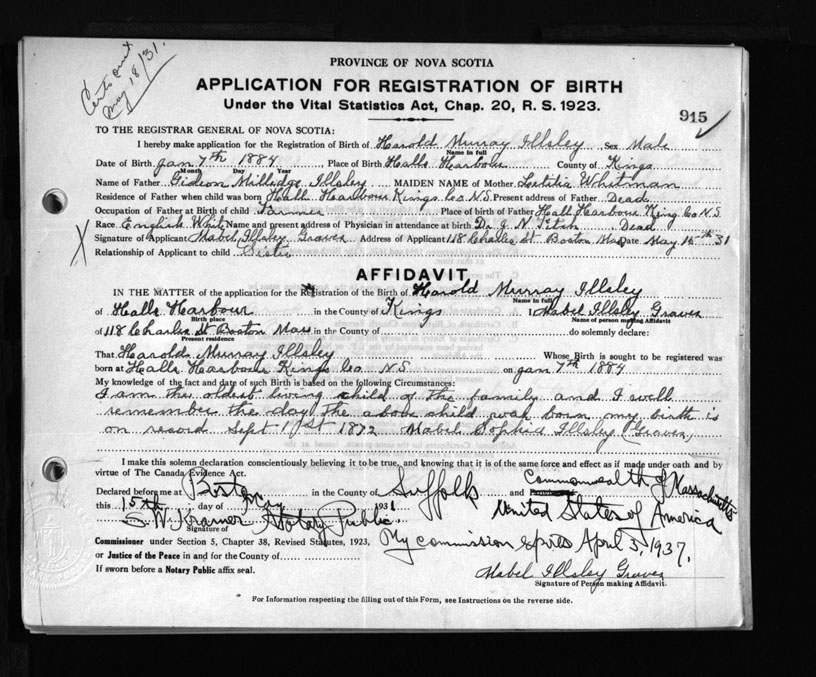 Certs sent
May 18/31.
PROVINCE OF NOVA SCOTIA
APPLICATION FOR REGISTRATION OF BIRTH
Under the Vital Statistics Act, Chap. 20, R. S. 1923.
915
TO THE REGISTRAR GENERAL OF NOVA SCOTIA:
I hereby make application for the Registration of Birth of Harold Murray Illsley Sex Male
Name in full
Date of Birth Jan 7th 1884 Place of Birth Halls Harbour County of Kings
Month Day Year
Name of Father Gideon Milledge Illsley MAIDEN NAME of Mother Laetitia Whitman
Residence of Father when child was born Hall Harbour Kings Co N.S. Present address of Father Dead
Occupation of Father at Birth of child Farmer Place of Birth of Father Hall Harbour King Co N.S
Race English White Name and present address of Physician in attendance at birth Dr J. N. Fitch Dead
Signature of Applicant Mabel Illsley Graves Address of Applicant 118 Charles St Boston Mass Date May 15th 31
X
Relationship of Applicant to child Sister
AFFIDAVIT
IN THE MATTER of the application for the Registration of the Birth of Harold Murray Illsley
Name in full
of Halls Harbour in the County of Kings I Mabel Illsley Graves
Birth place Name of person making Affidavit
of 118 Charles St Boston Mass in the County of do solemnly declare:
Present residence
That Harold Murray Illsley Whose Birth is sought to be registered was
born at Halls Harbour Kings Co N.S on Jan 7th 1884
My knowledge of the fact and date of such Birth is based on the following Circumstances:
I am the oldest living child of the family and I well
remember the day the above child was born my birth is
on record Sept 1st 1872 Mabel Sophia Illsley (Graves)
I make this solemn declaration conscientiously believing it to be true, and knowing that it is of the same force and effect as if made under oath and by
virtue of The Canada Evidence Act.
Declared before me at Boston in the County of Suffolk and Commonwealth of Massachusetts
this 15th day of May 1931 United States of America
S. W. Kramer Notary Public
Signature of
Commissioner under Section 5, Chapter 38, Revised Statutes, 1923,
My commission expires April 3, 1937.
or Justice of the Peace in and for the County of
If sworn before a Notary Public affix seal.
Mabel Illsley Graves
Signature of Person making Affidavit.
For Information respecting the filling out of this Form, see Instructions on the reverse side.